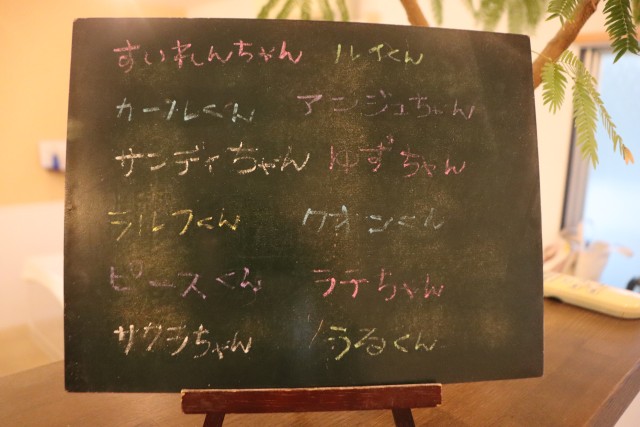 すいれんちゃん ルイくん
カールくん アンジュちゃん
サンディちゃん ゆずちゃん
ラルフくん クオンくん
ピースくん ラテちゃん
サクラちゃん うるくん